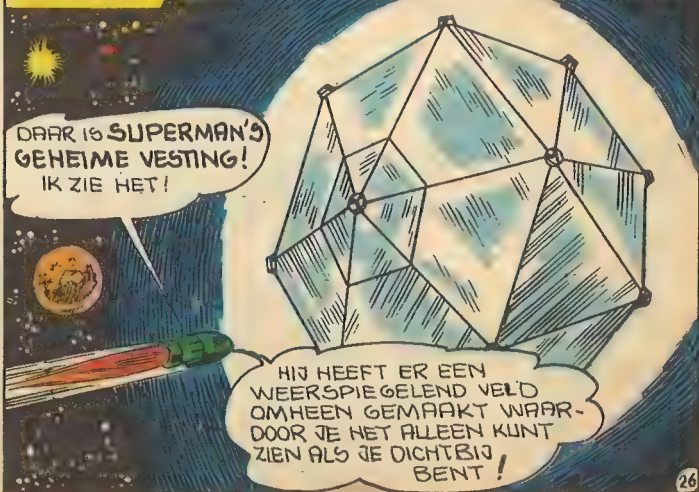 DAAR IS SUPERMAN'S
GEHEIME VESTING!
IK ZIE HET!
HIJ HEEFT ER EEN
WEERSPIEGELEND VELD
OMHEEN GEMAAKT WAAR-
DOOR JE HET ALLEEN KUNT
ZIEN ALS JE DICHTBIJ
BENT!
26